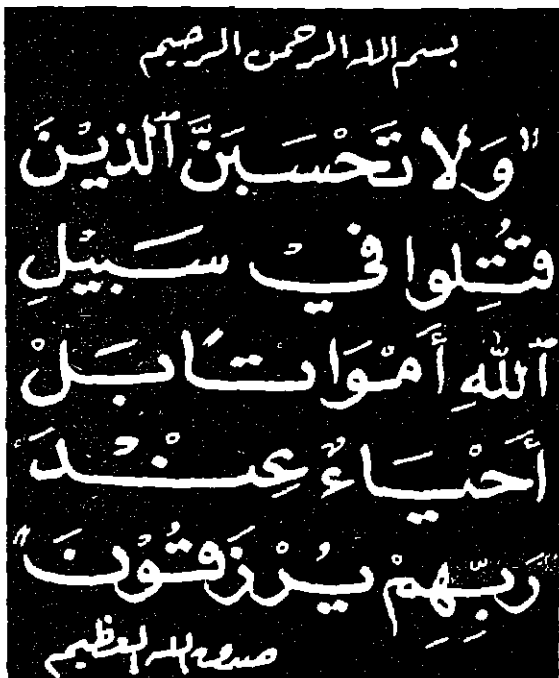 بسم الله الرحمن الرحيم
"وَلا تَحْسَبَنَّ ٱلذيْنَ
قُتِلوا فيْ سَبيْلِ
ٱللهِ أَمْوَاتًا بَلْ
أَحْيَاءٌ عِنْدَ
رَبِّهِمْ يُرْزَقُوْنَ"
صدق الله العظيم